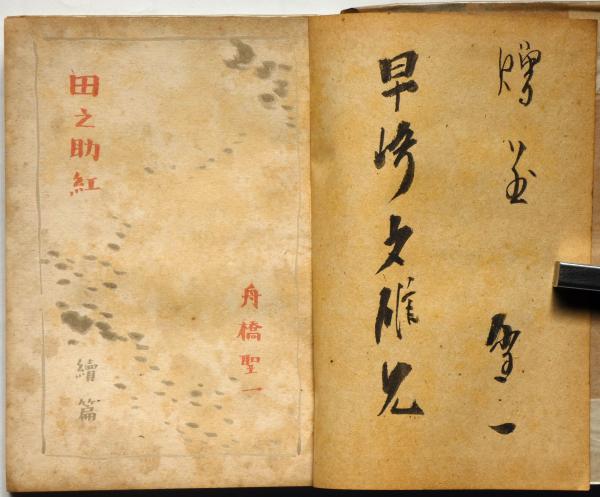 贈呈 聖一
早崎文雄兄
田之助紅
續篇
舟橋聖一